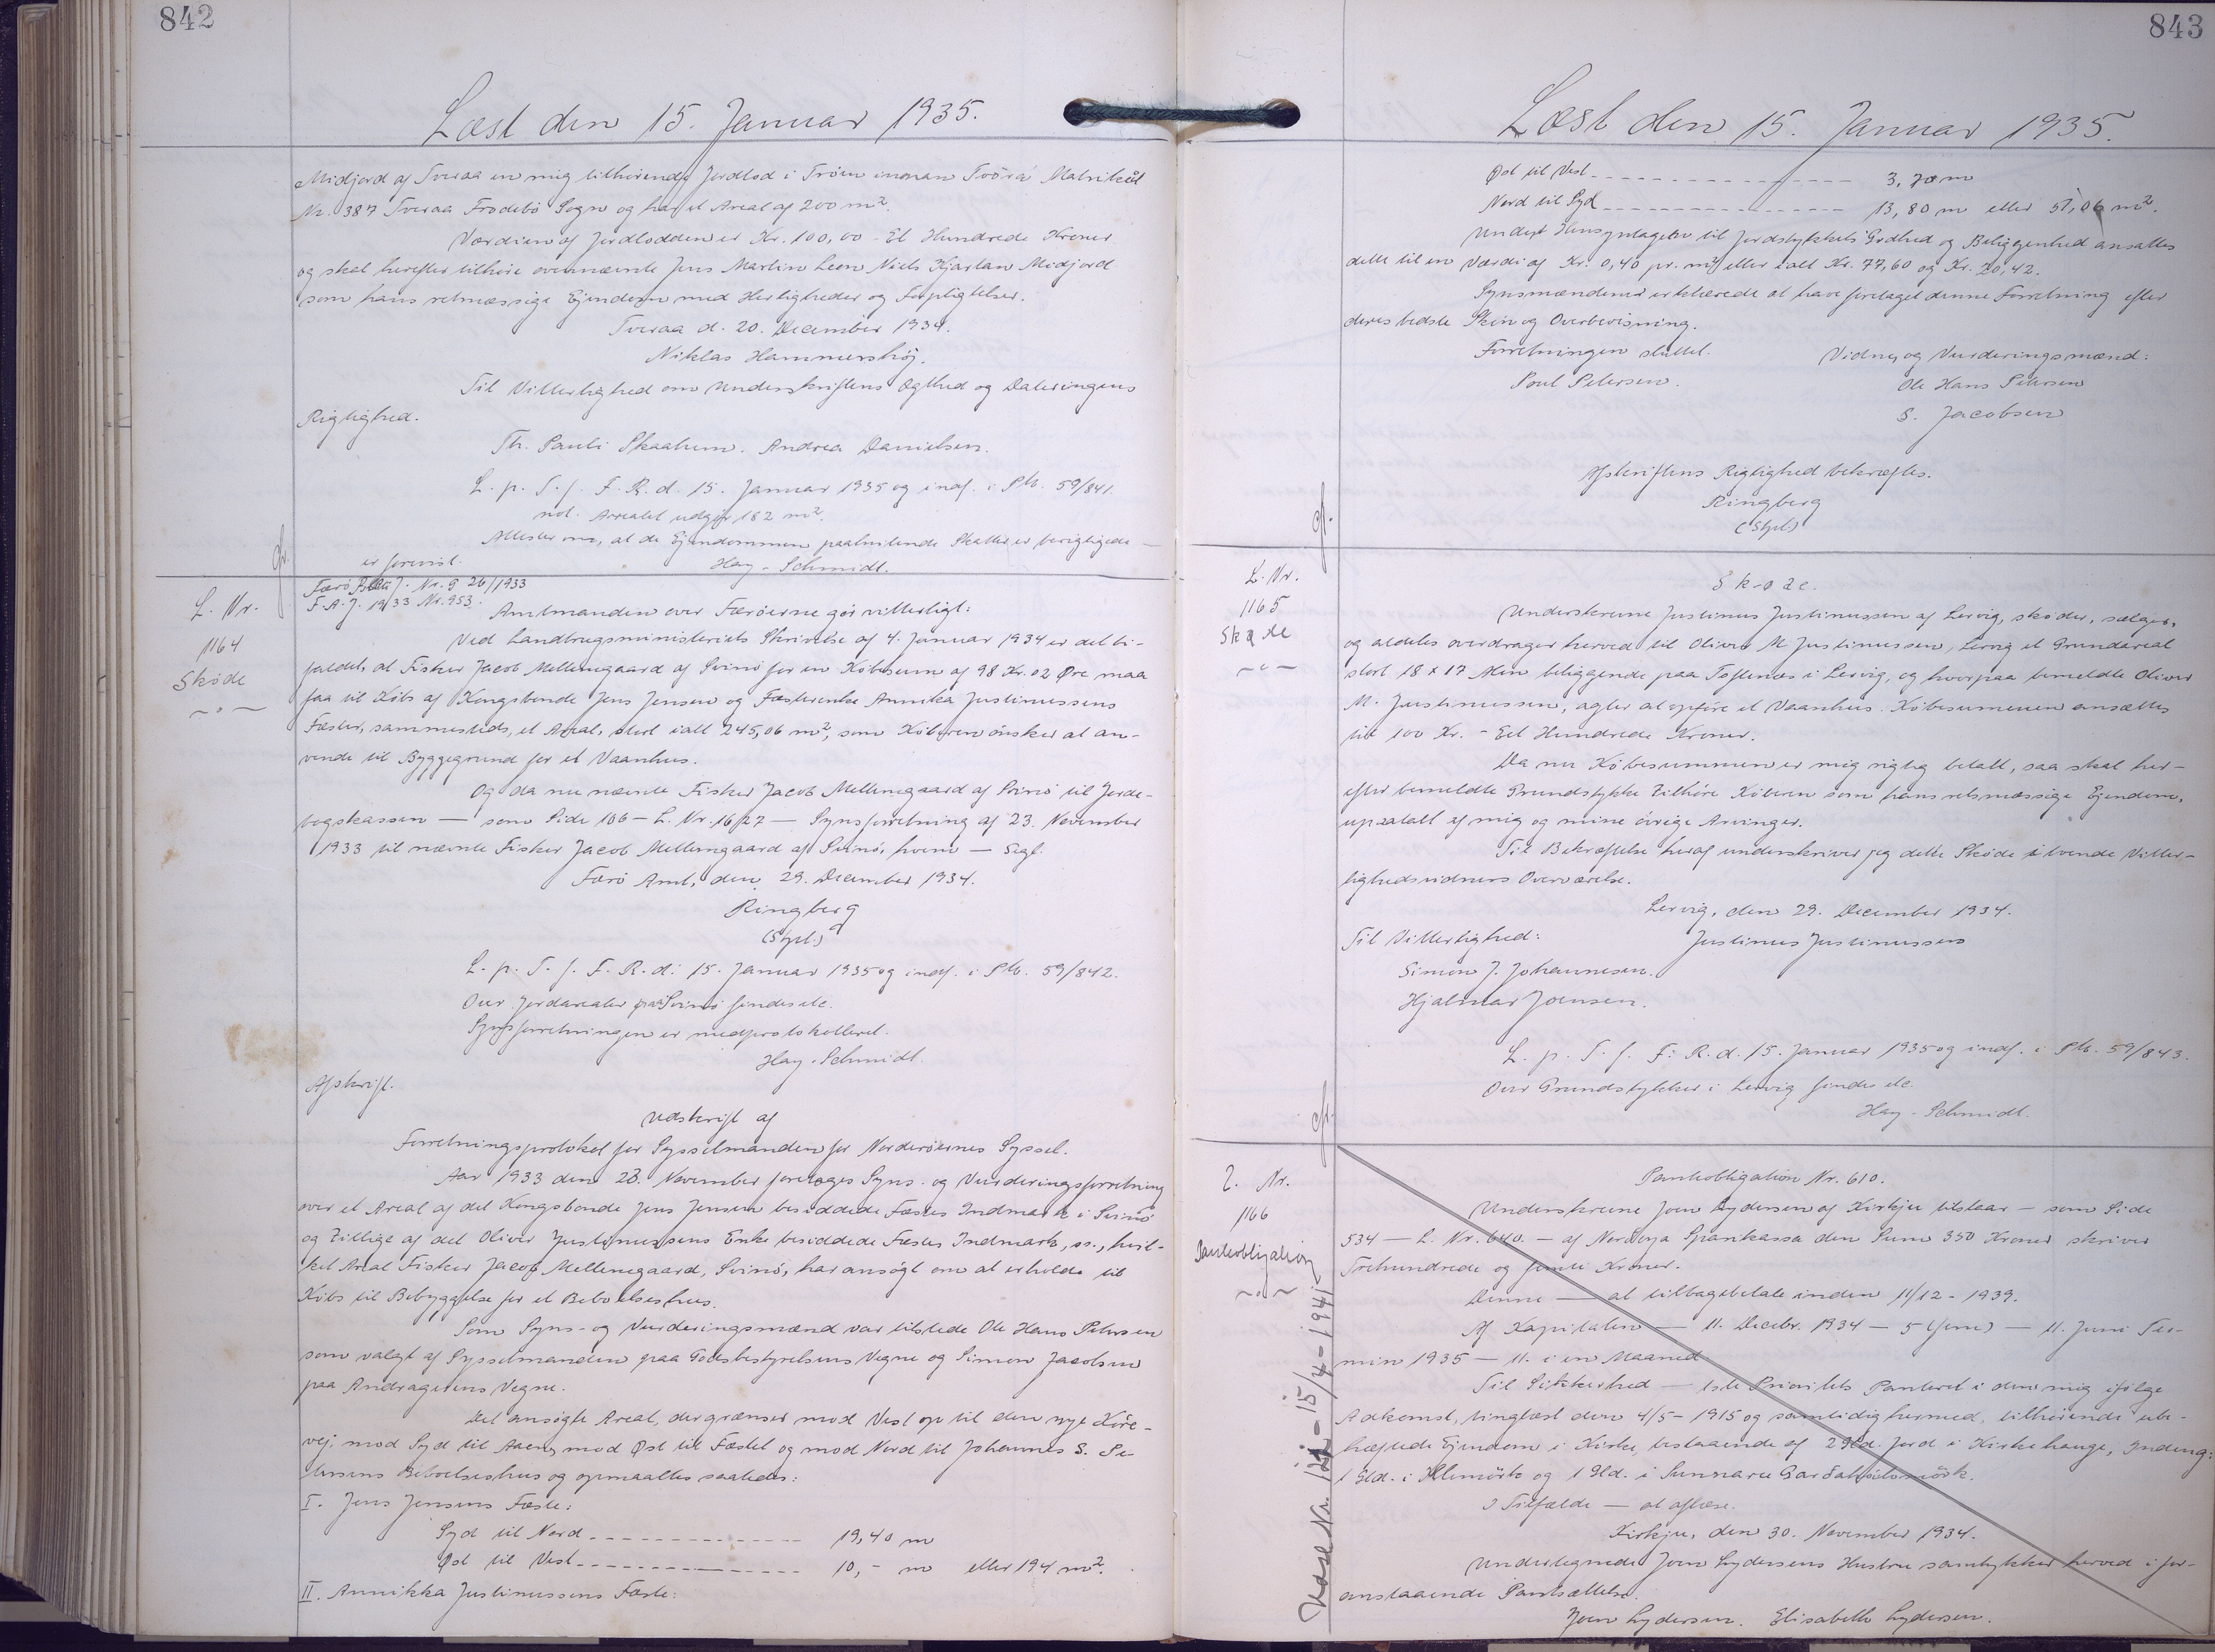 842
Læst den 15. Januar 1935.
Midjord af Tveraa en mig tilhörende Jordlod i Tröin innan Tvörá Matrikul
Nr. 387 Tveraa Frodebö Sogn og har et Areal af 200 m².
Værdien af Jordlodden er Kr. 100,00 - Et Hundrede Kroner
og skal herefter tilhöre ovennævnte Jens Martin Leon Niels Kjartan Midjord
som hans retmæssige Ejendom med Herligheder og Forpligtelser.
Tveraa d. 20. December 1934.
Niklas Hammershöj.
Til Vitterlighed om Underskriftens Ægthed og Dateringens
Rigtighed.
Th. Pauli Skaalum. Andrea Danielsen.
L. p. T. f. F. R. d. 15. Januar 1935 og indf. i Ptb. 59/841.
not. Arealet udgör 182 m².
Attester om, at de Ejendommen paahvilende Skatter er berigtigede
er forevist.
Hay-Schmidt.
gf.
L. Nr.
1164
Sköde
Færö J. Nr. 9 26/1933
F.A.J. 1933 Nr. 953.
Amtmanden over Færöerne gör vitterligt:
Ved Landbrugsministeriets Skrivelse af 4. Januar 1934 er det bi-
faldet, at Fisker Jacob Mellemgaard af Svinö for en Köbesum af 98 Kr. 02 Øre maa
faa til Köbs af Kongsbonde Jens Jensen og Fæsterenke Annika Justinussens
Fæster, sammesteds, et Areal, stort ialt 245,06 m², som Köberen önsker at an-
vende til Byggegrund for et Vaanhus.
Og da nu nævnte Fisker Jacob Mellemgaard af Svinö til Jorde-
bogskassen — som Side 106 - L. Nr. 16/27 — Synsforretning af 23. November
1933 til nævnte Fisker Jacob Mellemgaard af Svinö, hvem — Segl.
Færö Amt, den 29. December 1934.
Ringberg
(Stpl.)
L. p. T. f. F. R. d. 15. Januar 1935 og indf. i Ptb. 59/842.
Over Jordarealer paa Svinö findes etc.
Synsforretningen er medprotokolleret.
Hay-Schmidt.
Afskrift.
Udskrift af
Forretningsprotokol for Sysselmanden for Norderöernes Syssel.
Aar 1933 den 23. November foretoges Syns- og Vurderingsforretning
over et Areal af det Kongsbonde Jens Jensen besiddede Fæstes Indmark i Svinö
og tillige af det Oliver Justinussens Enke besiddede Fæstes Indmark, ss., hvil-
ket Areal Fisker Jacob Mellemgaard, Svinö, har ansögt om at erholde til
Köbs til Bebyggelse for et Beboelseshus.
Som Syns- og Vurderingsmænd var tilstede Ole Hans Petersen
som valgt af Sysselmanden paa Godsbestyrelsens Vegne og Simon Jacobsen
paa Andragerens Vegne.
Det ansögte Areal, der grænser mod Vest op til den nye Köre-
vej, mod Syd til Aaen, mod Øst til Fæstet og mod Nord til Johannes S. Pe-
tersens Beboelseshus og opmaaltes saaledes:
I. Jens Jensens Fæste:
Syd til Nord - - - - - 19,40 m
Øst til Vest - - - - - 10,- m eller 194 m².
II. Annikka Justinussens Fæste:
843
Læst den 15. Januar 1935.
Øst til Vest - - - - - 3,70 m
Nord til Syd - - - - - 13,80 m eller 51,06 m².
Under Hensyntagelse til Jordstykkets Godhed og Beliggenhed ansattes
dette til en Værdi af Kr. 0,40 pr. m² eller ialt Kr. 77,60 og Kr. 20,42.
Synsmændene erklærede at have foretaget denne Forretning efter
deres bedste Skön og Overbevisning.
Forretningen sluttet.
Vidner og Vurderingsmænd:
Poul Petersen.
Ole Hans Petersen
S. Jacobsen
Afskriftens Rigtighed bekræftes.
Ringberg
(Stpl.)
gf.
L. Nr.
1165
Sköde
Sköde.
Underskrevne Justinus Justinussen af Lervig, sköder, sælger,
og aldeles overdrager herved til Oliver M Justinussen, Lervig et Grundareal
stort 18 x 17 Alen beliggende paa Toftenæs i Lervig, og hvorpaa bemeldte Oliver
M. Justinussen, agter at opföre et Vaanhus. Köbesummen ansættes
til 100 Kr. - Eet Hundrede Kroner.
Da nu Köbesummen er mig rigtig betalt, saa skal her-
efter bemeldte Grundstykke tilhöre Köberen som hans retsmæssige Ejendom,
upaatalt af mig og mine övrige Arvinger.
Til Bekræftelse heraf underskriver jeg dette Sköde i tvende Vitter-
lighedsvidners Overværelse.
Lervig, den 29. December 1934.
Til Vitterlighed:
Justinus Justinussen
Simon J. Johannesen.
Hjalmar Joensen.
L. p. T. f. F. R. d. 15. Januar 1935 og indf. i Ptb. 59/843.
Over Grundstykker i Lervig findes etc.
Hay-Schmidt.
gf.
L. Nr.
1166
Panteobligation
Panteobligation Nr. 610.
Underskrevne Joen Lydersen af Kirkju tilstaar — som Side
534 — L. Nr. 640. — af Nordoya Sparikassa den Sum 350 Kroner skriver
Trehundrede og femti Kroner.
Denne — at tilbagebetale inden 11/12 - 1939.
Af Kapitalen — 11. Decebr. 1934 — 5 (fem) — 11. Juni Ter-
min 1935 — 11. i en Maaned
Til Sikkerhed — 1ste Prioritets Panteret i den mig ifölge
Adkomst, tinglæst den 4/5 - 1915 og samtidig hermed, tilhörende ube-
hæftede Ejendom i Kirke, bestaaende af 2 Gld. Jord i Kirkehauge, Indmg:
1 Gld. i Heimörk og 1 Gld. i Sunnaru
I Tilfælde — at aflæse.
Kirkju, den 30. November 1934.
Undertegnede Joen Lydersens Hustru samtykker herved i for-
anstaaende Pantsættelse.
Joen Lydersen. Elisabeth Lydersen.
15/4 - 1941